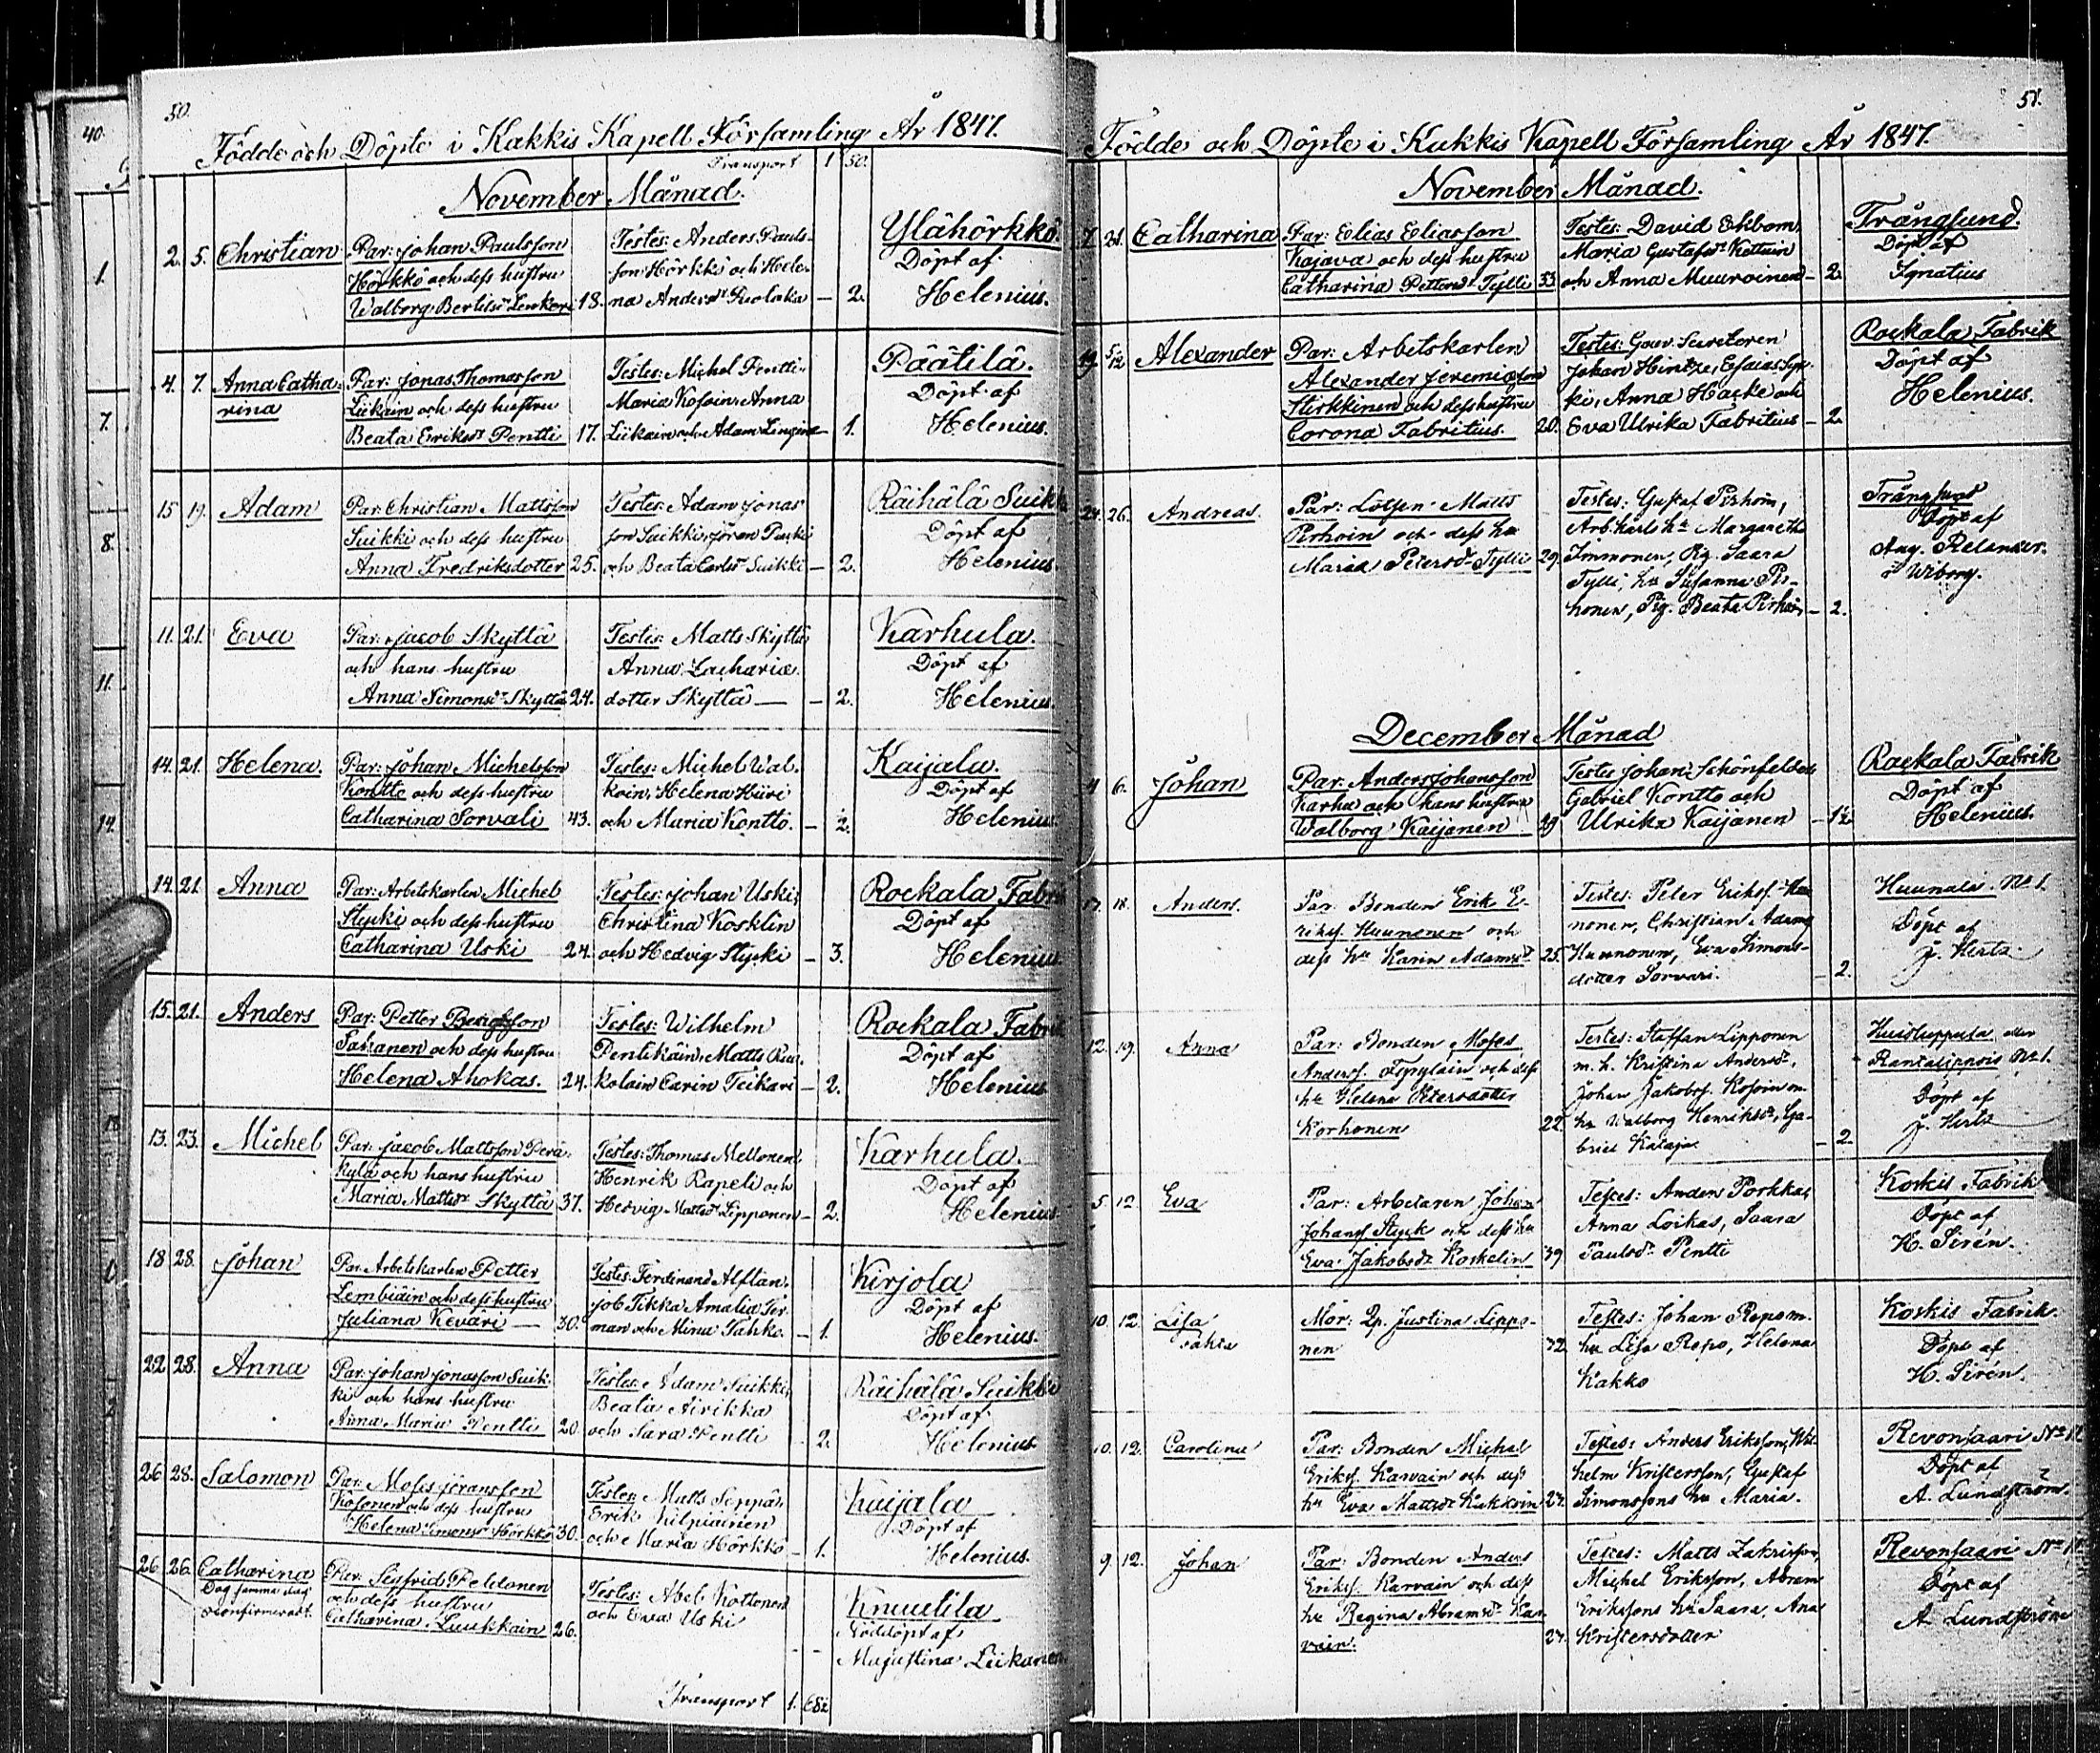 50.
Födde och Döpte i Kakkis Kapell Församling År 1847.
Transport 1 50.
November Månad.
2. 5. Christian Par: Johan Paulsson Testes: Anders Pauls- Ylähörkkö.
Hörkkö och dess hustru son Hörkkö och Hele- Döpt af
Walborg Bertilsdr 18. na Andersdr - 2. Helenius.
4. 7. Anna Catha- Par: Jonas Thomasson Testes: Michel Pentti Päätilä.
rina Liikain och dess hustru Maria Kosoin, Anna Döpt af
Beata Eriksdr Pentti 17. Liikain och Adam - 1. Helenius.
15 19. Adam Par: Christian Mattsson Testes: Adam Jonas Räihälä Suikk
Suikki och dess hustru son Suikki, Jöran Döpt af
Anna Fredriksdotter 25. och Beata Carlsdr Suikki - 2. Helenius
11. 21. Eva Par: Jacob Skyttä Testes: Matts Skyttä Karhula.
och hans hustru Anna Zachariæ Döpt af
Anna Simonsdr Skyttä 24. dotter Skyttä - 2. Helenius.
14. 21. Helena. Par: Johan Michelsson Testes: Michel Wal- Kaijala.
Kontto och dess hustru koin, Helena Hiiri Döpt af
Catharina Sorvali 43. och Maria Kontto. - 2. Helenius
14. 21. Anna Par: Arbetskarlen Michel Testes: Johan Uski, Rockala Fabri
Stycki och dess hustru Christina Kosklin Döpt af
Catharina Uski 24. och Hedvig Stycki - 3. Helenius
15. 21. Anders Par: Petter Bengtsson Testes: Wilhelm Rockala Fabrik
och dess hustru Pentikäin, Matts Döpt af
Helena Ahokas. 24. kolain Carin Teikari - 2. Helenius
13. 23. Michel Par: Jacob Mattsson Perä- Testes: Thomas Mellonen, Karhula.
kylä och hans hustru Henrik Rapeli och Döpt af
Maria Mattsdr Skyttä 37. Hedvig Mattsdr Lipponen - 2. Helenius
18 28. Johan Par: Arbetskarlen Petter Testes: Ferdinand Alftan, Kirjola
Lembiäin och dess hustru Job Tikka Amalia Döpt af
Juliana Keväri 30. man och Mina Tahko. - 1. Helenius.
22 28. Anna Par: Johan Jonasson Suik- Testes: Adam Suikki, Räihälä Suikki
ki och hans hustru Beata Airikka Döpt af
Anna Maria Pentti 20. och Sara Pentti 2. Helenius
26 28. Salomon Par: Moses Jöransson Testes: Matts Seppä, Kaijala
Kosonen och dess hustru Erik Kilpiäinen Döpt af
Helena Simonsdr Hörkkö 30. och Maria Hörkkö - 1. Helenius.
26 26. Catharina Par: Sigfrid Peltonen Testes: Abel Kottonen Knuutila
Dog samma dag och dess hustru och Eva Uski Nöddöpt af
okonfirmeradt. Catharina Luukkain 26. - - Liikanen
Transport 1. 68½
51.
Födde och Döpte i Kakkis Kapell Församling År 1847.
November Månad.
7. 21. Catharina Par: Elias Eliasson Testes: David Ekbom, Trångsund.
Kajava och dess hustru Maria Gustafsdr Döpt af
Catharina Pettersdr Tylli 33 och Anna Muuroinen - 2. Ignatius
19. 5/12 Alexander Par: Arbetskarlen Testes: Gouv. Secreteren Rockala Fabrik
Alexander Jeremiasson Johan Hintze, Esaias Döpt af
Stirkkinen och dess hustru ki, Anna Hacke och Helenius.
Corona Fabritius. 20. Eva Ulrika Fabritius - 2.
24. 26. Andreas. Par: Lotsen Matts Testes: Gustaf Pirhoin, Trångsund
Pirhoin och dess hu Arb.karls hu Margaretha Döpt af
Maria Petersdr Tylli 29. Immonen, Pig. Saara Aug. Relander.
Tylli, hu Susanna Pir- i Wiborg.
honen, Pig. Beata Pirhoin - 2.
December Månad
4 6. Johan Par: Anders Johansson Testes Johan Schönfeldt Rockala Fabrik
Karhu och hans hustru Gabriel Kontto och Döpt af
Walborg Kaijanen 29 Ulrika Kaijanen - 1½ Helenius.
17. 18. Anders. Par: Bonden Erik E- Testes: Peter Eriks. Huu- Huunala. No 1.
riks. Huunonen och nonen, Christian Adams Döpt af
dess hu Karin Adamsdr 25. Huunonen, Eva Simons- J. Hertz
dotter Sorvari. - 2.
12. 19. Anna Par: Bonden Moses Testes: Staffan Lipponen eller
Anders. och dess m. h. Kristina Andersdr, No 1.
hu Helena Petersdotter Johan Jakobs. Kosoin m. Döpt af
Korhonen 22. hu Walborg Henriksdr, Ga- J. Hertz
briel Kataja - 2.
5. 12. Eva Par: Arbetaren Johan Testes: Anders Porkka, Koskis Fabrik
Johans. Styck och dess hu Anna Loikas, Saara Döpt af
Eva Jakobsdr Koskelin 39 Paulsdr Pentti H. Sirén.
10. 12. Lisa Mor: Qp. Justina Lippo- Testes: Johan Repo m. Koskis Fabrik.
nen 32 hu Lisa Repo, Helena Döpt af
Kakko H. Sirén.
10. 12. Carolina Par: Bonden Michel Testes: Anders Eriksson, Wil- Revonsaari No 12
Eriks. Karvain och dess helm Kristersson, Gustaf Döpt af
hu Eva Mattsdr Kukkoin 27. Simonssons hu Maria. A. Lundström.
9. 12. Johan Par: Bonden Anders Testes: Matts Zakrisson, Revonsaari No
Eriks. Karvain och dess Michel Eriksson, Abram Döpt af
hu Regina Abramsdr Kar- Erikssons hu Saara, Ana A. Lundström
vain. 27. Kristersdotter
40.
1.
7.
8.
11.
14.